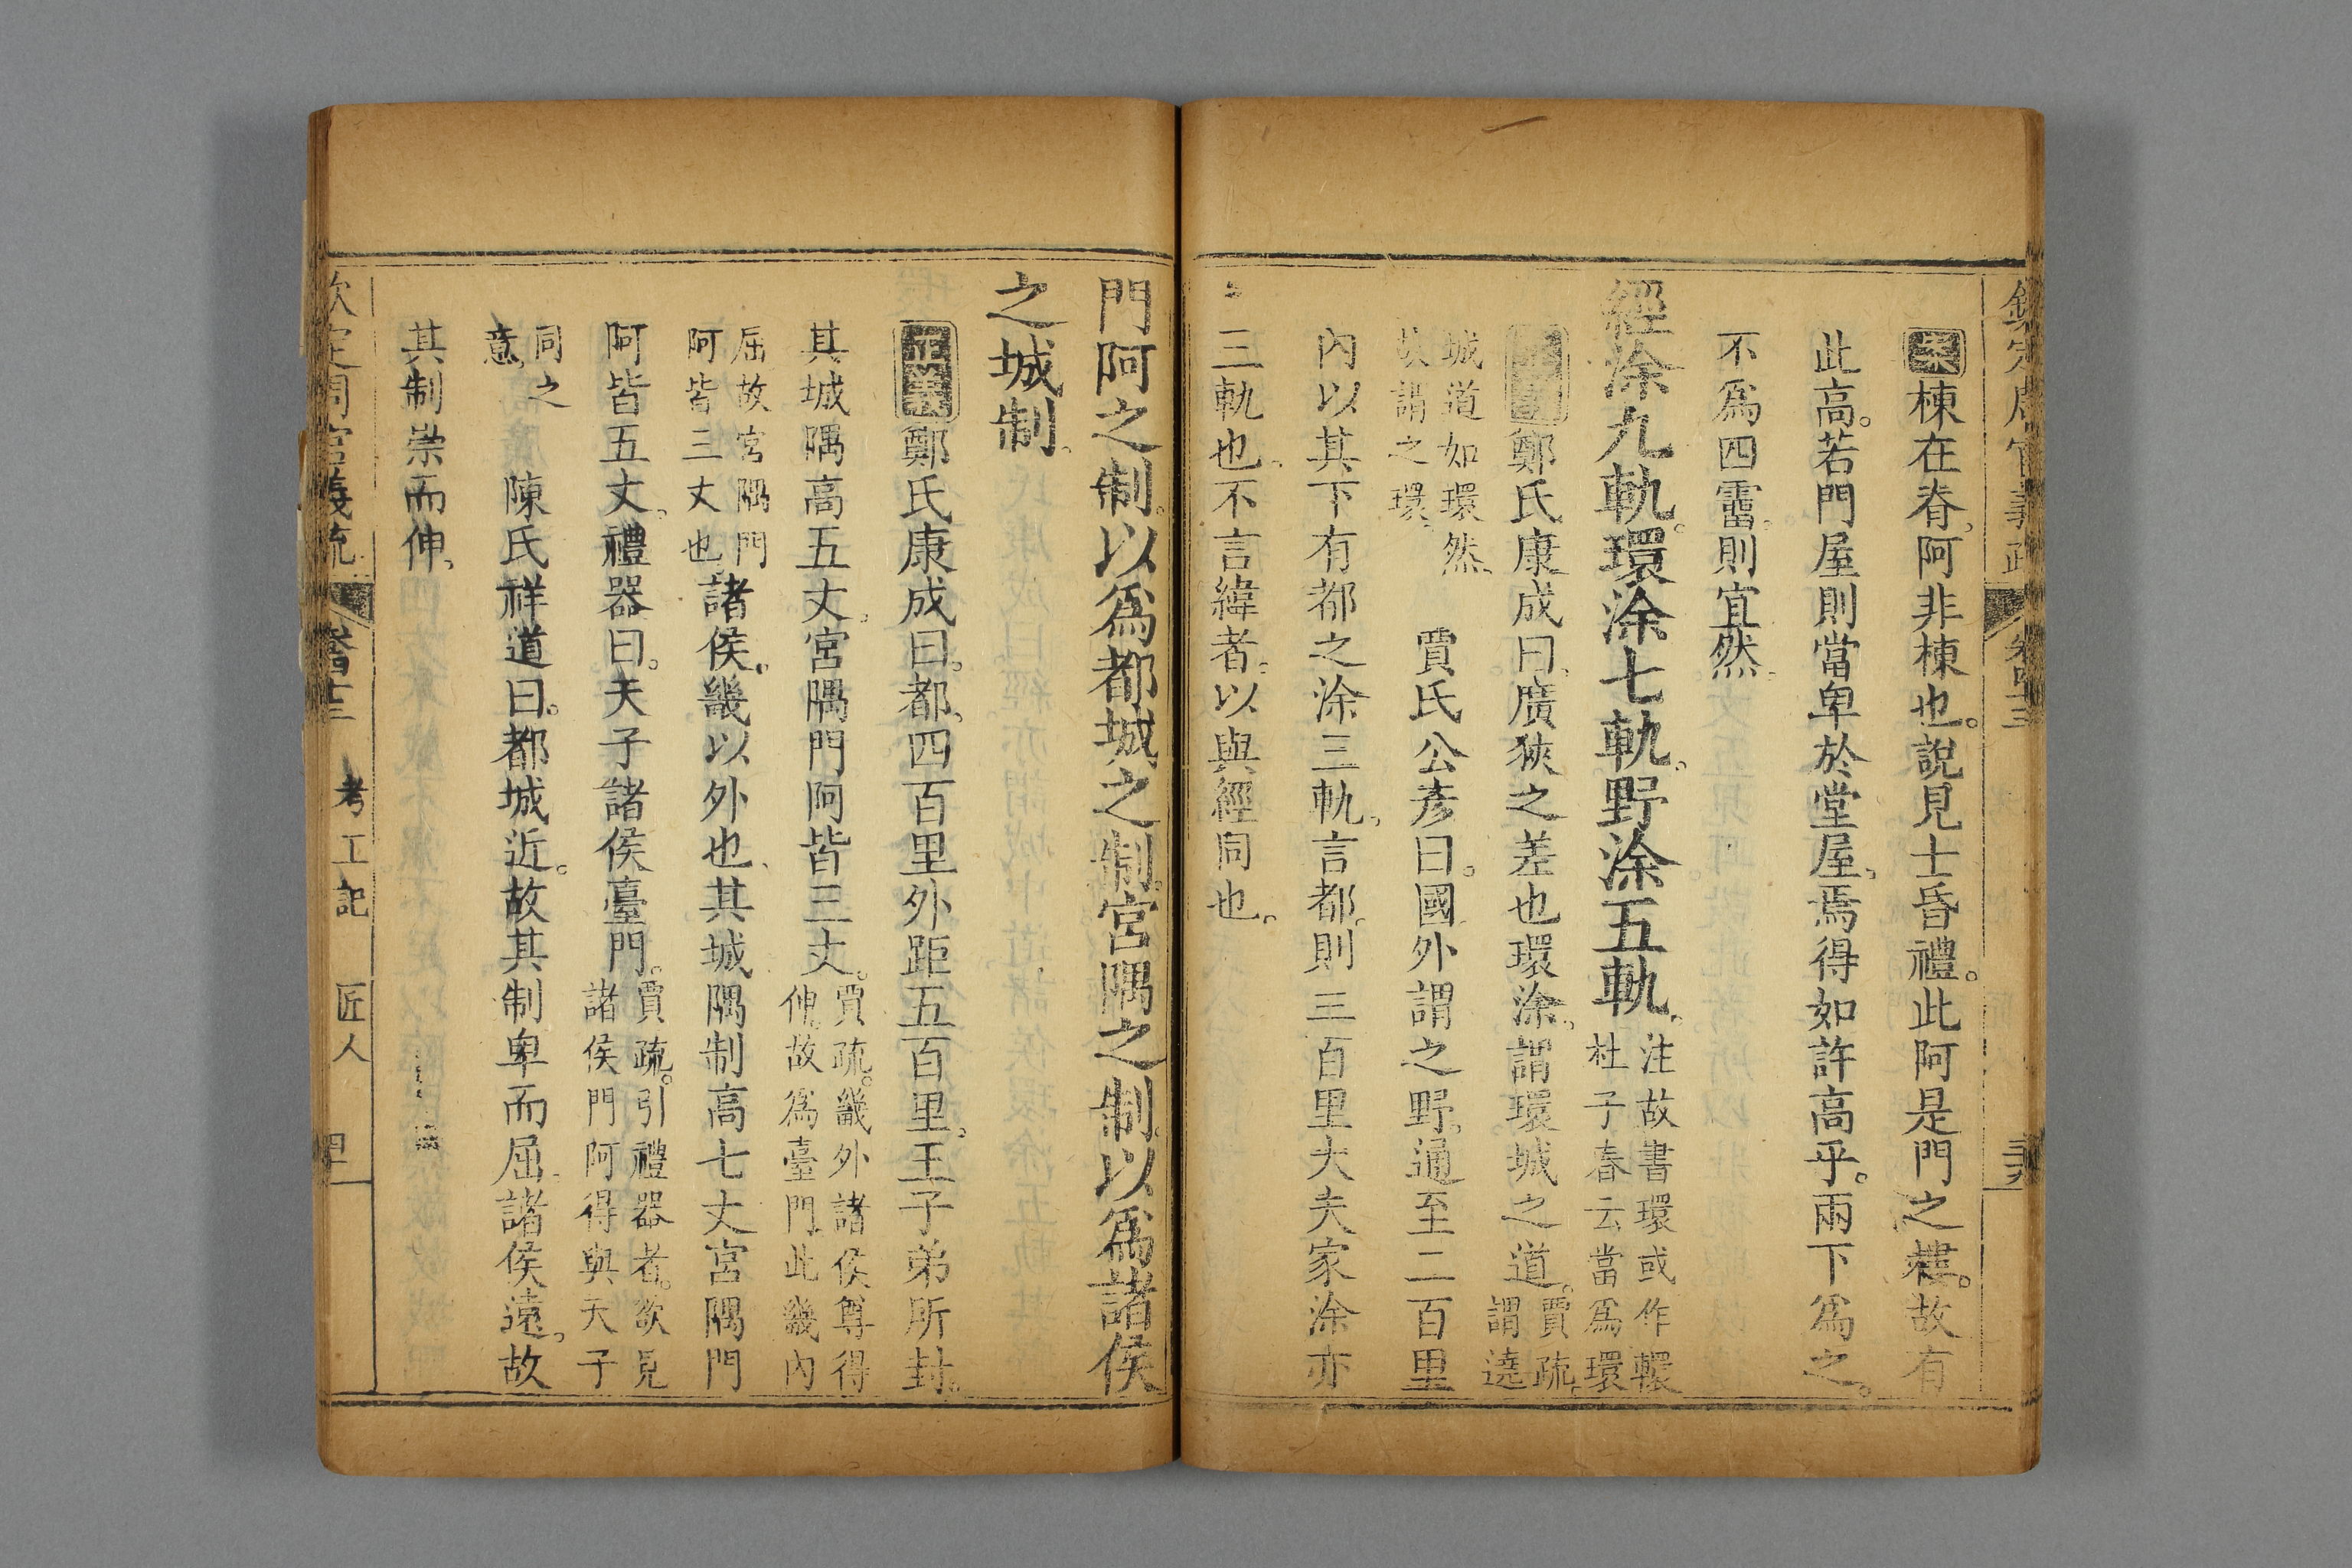 欽定周官義疏 卷四十三 三九
案棟在脊。阿非棟也。說見士昏禮。此阿是門之䙔。故有
此高。若門屋則當卑於堂屋。焉得如許高乎。兩下爲之。
不爲四霤。則宜然。
經涂九軌。環涂七軌。野涂五軌。
注故書環或作轘
杜子春云當爲環
鄭氏康成曰。廣狹之差也環涂。謂環城之道。
賈疏。
謂遶
城道如環然。
故謂之環。
賈氏公彥曰。國外謂之野。通至二百里
內以其下有都之涂三軌。言都。則三百里大夫家涂亦
三軌也。不言緯者。以與經同也。
門阿之制。以爲都城之制。宮隅之制。以爲諸侯
之城制。
正義鄭氏康成曰。都。四百里外距五百里。王子弟所封。
其城隅高五丈。宮隅門阿皆三丈。
賈疏。畿外諸侯尊得
伸。故爲臺門。此畿內
屈故宮隅門
阿皆三丈也。
諸侯。畿以外也。其城隅制高七丈宮隅門
阿皆五丈。禮器曰。天子諸侯臺門。
賈疏。引禮器者。欲見
諸侯門阿得與天子
同之
意。
陳氏祥道曰。都城近。故其制卑而屈。諸侯遠。故
其制崇而伸。
欽定周官義疏 考工記 匠人